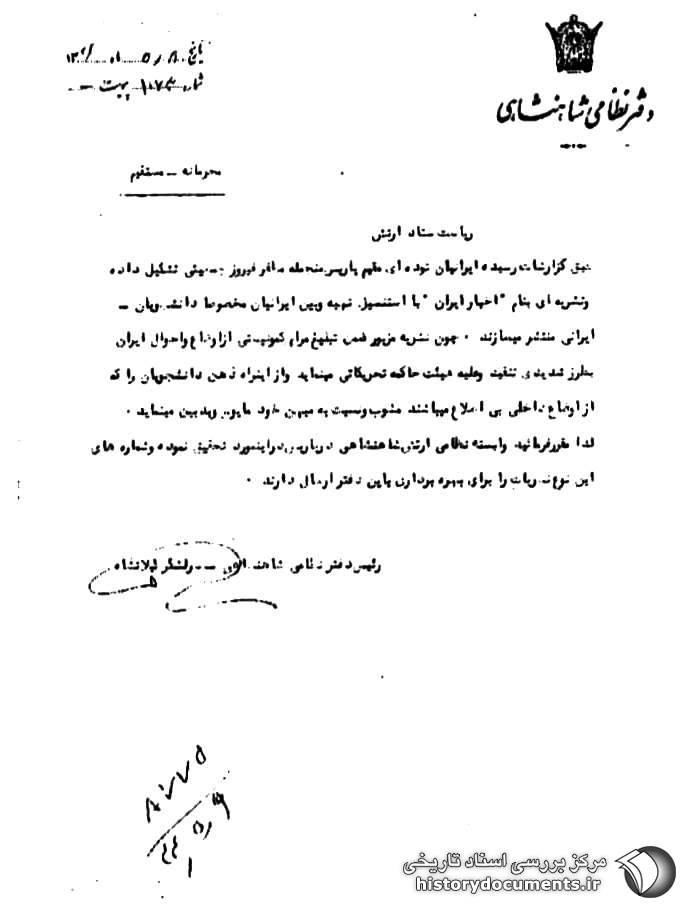 دفتر نظامی شاهنشاهی
تاریخ
شماره پیوست -
محرمانه - مستقیم
ریاست ستاد ارتش
طبق گزارشات رسیده ایرانیان توده ای مقیم پاریس منجمله مظفر فیروز جمعیتی تشکیل داده
ونشریه ای بنام "اخبار ایران" با استنسیل تهیه وبین ایرانیان مخصوصا دانشجویان -
ایرانی منتشر میسازند . چون نشریه مزبور ضمن تبلیغ مرام کمونیستی از اوضاع واحوال ایران
بطرز شدیدی تنقید وعلیه هیئت حاکمه تحریکاتی مینماید واز اینراه ذهن دانشجویان را که
از اوضاع داخلی بی اطلاع میباشند مشوب ونسبت به میهن خود مایوس وبدبین مینماید .
لذا مقررفرمائید وابسته نظامی ارتش شاهنشاهی درپاریس دراینمورد تحقیق نموده وشماره های
این نوع نشریات را برای بهره برداری باین دفتر ارسال دارند .
رئیس دفتر نظامی شاهنشاهی - سرلشگر گیلانشاه
مرکز بررسی اسناد تاریخی
historydocuments.ir